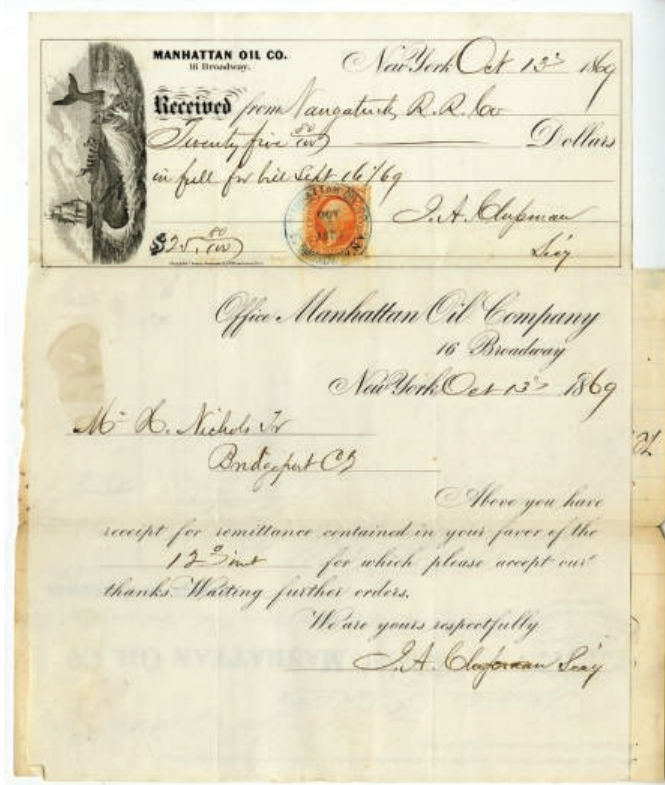 MANHATTAN OIL CO.
16 Broadway.
New York Oct 13 1869
Received from Naugatuck R. R. Co
Twenty five 80/100 Dollars
in full for bill Sept 16/69
J. A. Chapman
$25. 80/100 Secy
Office Manhattan Oil Company
16 Broadway
New York Oct 13 1869
Mr H. Nichols Tr
Bridgeport Ct
Above you have
receipt for remittance contained in your favor of the
12 inst for which please accept our
thanks. Waiting further orders.
We are yours respectfully
J. A. Chapman Secy